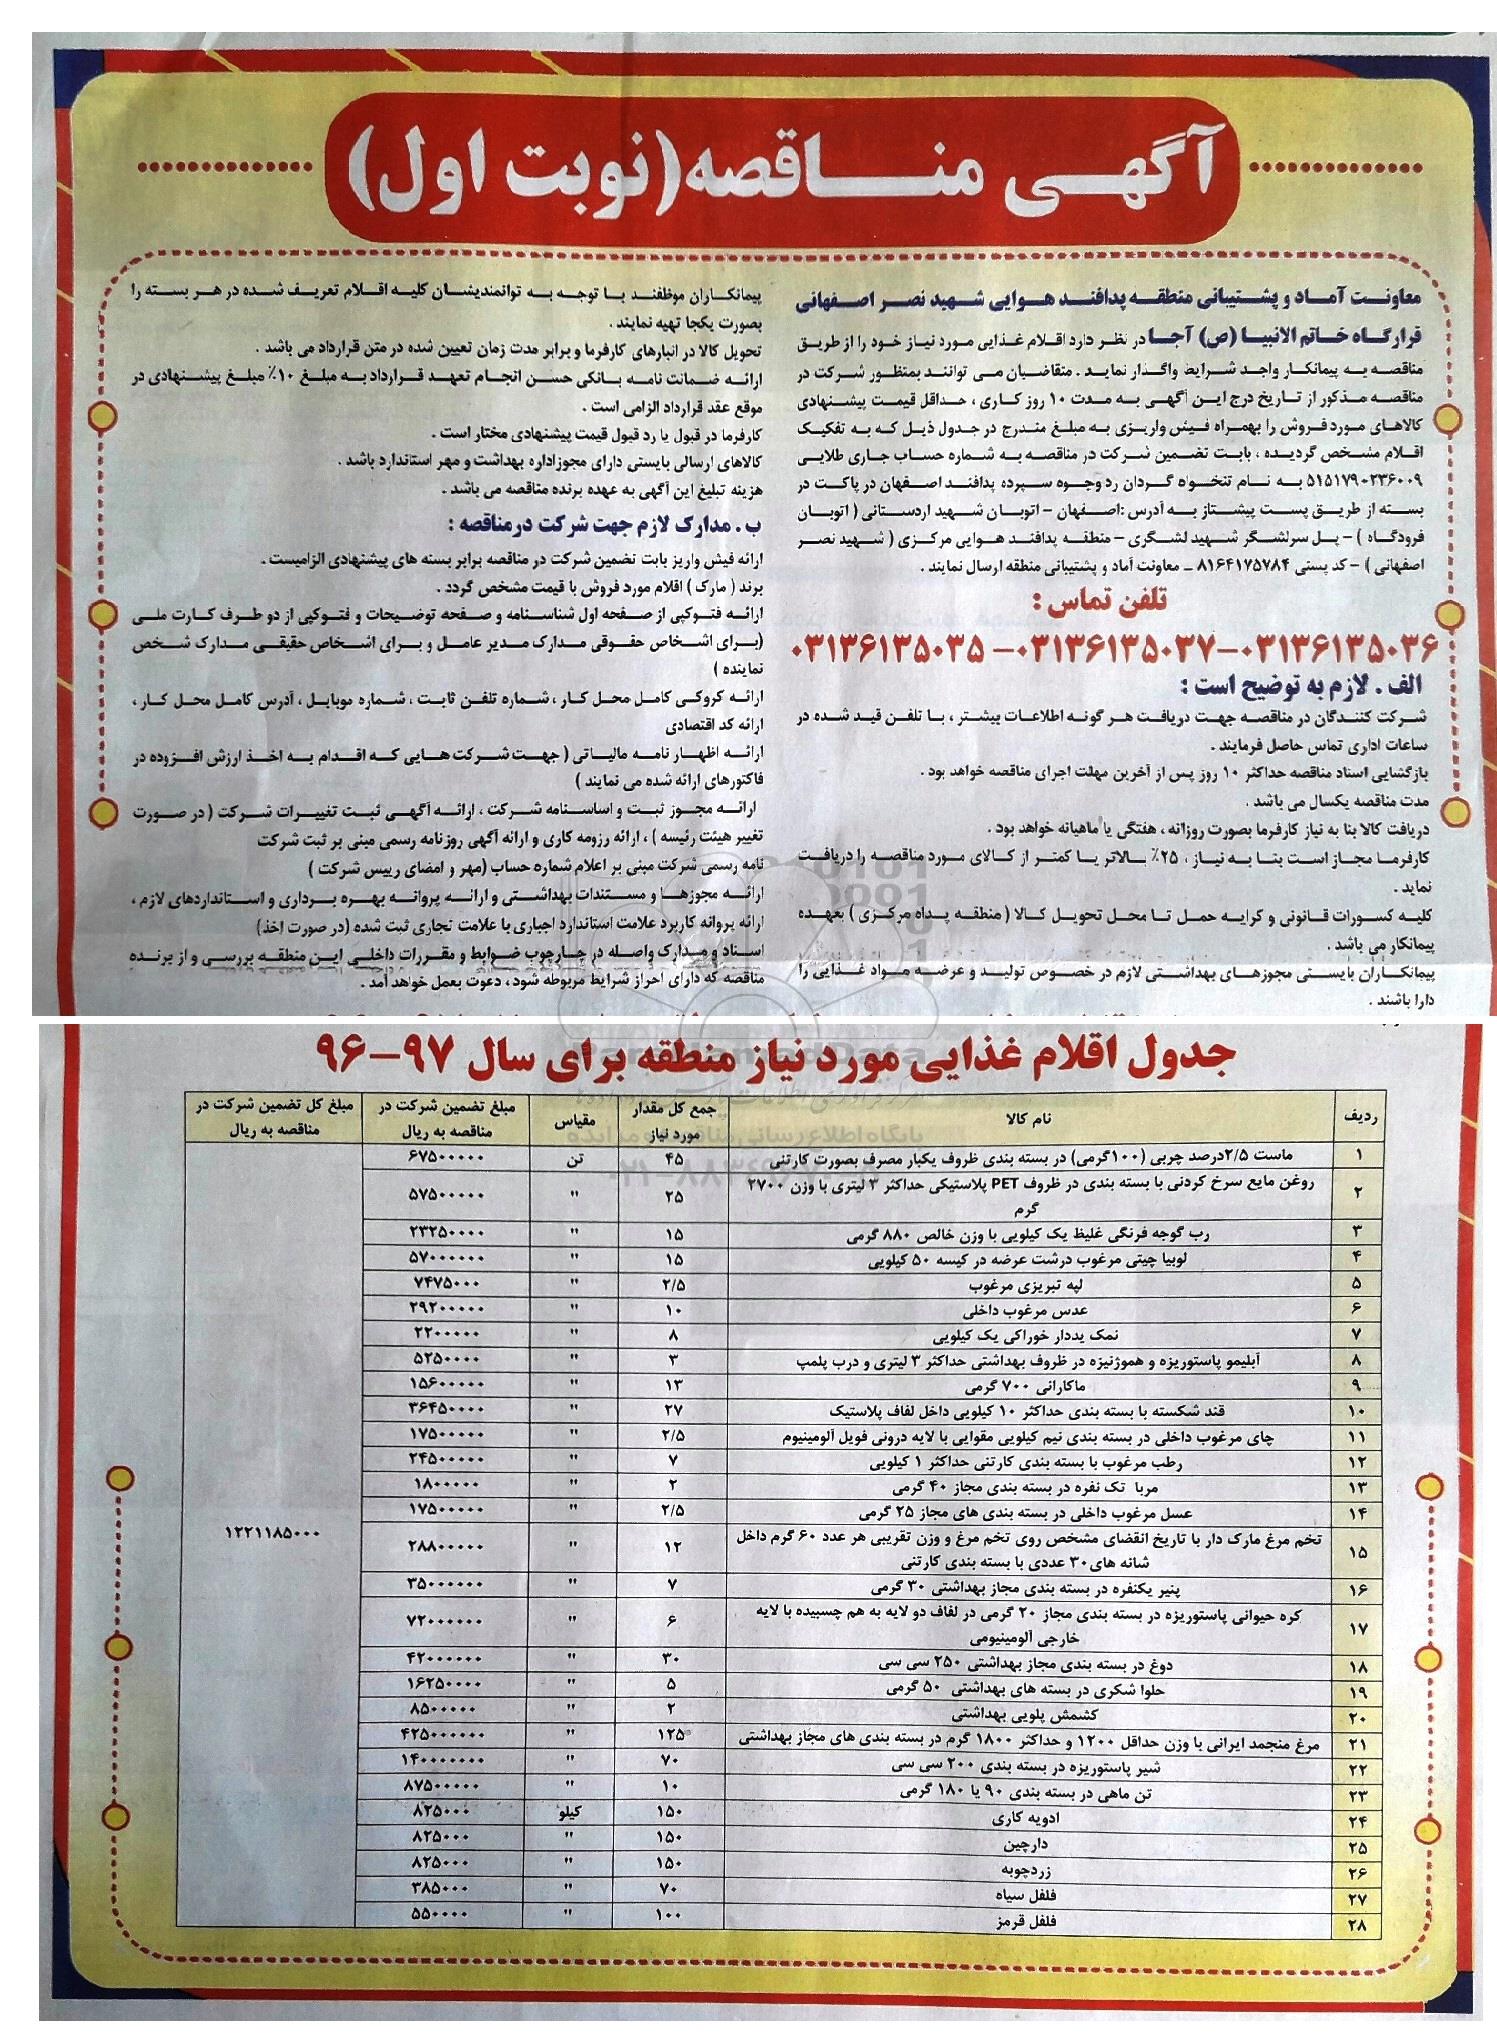 آگهی مناقصه(نوبت اول)
معاونت آماد و پشتیبانی منطقه پدافند هوایی شهید نصر اصفهانی
قرارگاه خاتم الانبیا (ص) آجا در نظر دارد اقلام غذایی مورد نیاز خود را از طریق
مناقصه به پیمانکار واجد شرایط واگذار نماید . متقاضیان می توانند بمنظور شرکت در
مناقصه مذکور از تاریخ درج این آگهی به مدت ۱۰ روز کاری ، حداقل قیمت پیشنهادی
کالاهای مورد فروش را بهمراه فیش واریزی به مبلغ مندرج در جدول ذیل که به تفکیک
اقلام مشخص گردیده ، بابت تضمین شرکت در مناقصه به شماره حساب جاری طلایی
۵۱۵۱۷۹۰۲۳۶۰۰۹ به نام تنخواه گردان رد وجوه سپرده پدافند اصفهان در پاکت در
بسته از طریق پست پیشتاز به آدرس :اصفهان – اتوبان شهید اردستانی ( اتوبان
فرودگاه ) – پل سرلشگر شهید لشگری – منطقه پدافند هوایی مرکزی ( شهید نصر
اصفهانی ) – کد پستی ۸۱۶۴۱۷۵۷۸۴ ـ معاونت آماد و پشتیبانی منطقه ارسال نمایند .
تلفن تماس :
۰۳۱۳۶۱۳۵۰۳۶–۰۳۱۳۶۱۳۵۰۳۷– ۰۳۱۳۶۱۳۵۰۳۵
الف . لازم به توضیح است :
شرکت کنندگان در مناقصه جهت دریافت هر گونه اطلاعات بیشتر ، با تلفن قید شده در
ساعات اداری تماس حاصل فرمایند .
بازگشایی اسناد مناقصه حداکثر ۱۰ روز پس از آخرین مهلت اجرای مناقصه خواهد بود .
مدت مناقصه یکسال می باشد .
دریافت کالا بنا به نیاز کارفرما بصورت روزانه ، هفتگی یا ماهیانه خواهد بود .
کارفرما مجاز است بنا به نیاز ، ۲۵٪ بالاتر یا کمتر از کالای مورد مناقصه را دریافت
نماید .
کلیه کسورات قانونی و کرایه حمل تا محل تحویل کالا ( منطقه پداه مرکزی ) بعهده
پیمانکار می باشد .
پیمانکاران بایستی مجوزهای بهداشتی لازم در خصوص تولید و عرضه مواد غذایی را
دارا باشند .
پیمانکاران موظفند با توجه به توانمندیشان کلیه اقلام تعریف شده در هر بسته را
بصورت یکجا تهیه نمایند .
تحویل کالا در انبارهای کارفرما و برابر مدت زمان تعیین شده در متن قرارداد می باشد .
ارائه ضمانت نامه بانکی حسن انجام تعهد قرارداد به مبلغ ۱۰٪ مبلغ پیشنهادی در
موقع عقد قرارداد الزامی است .
کارفرما در قبول یا رد قبول قیمت پیشنهادی مختار است .
کالاهای ارسالی بایستی دارای مجوز اداره بهداشت و مهر استاندارد باشد .
هزینه تبلیغ این آگهی به عهده برنده مناقصه می باشد .
ب . مدارک لازم جهت شرکت در مناقصه :
ارائه فیش واریز بابت تضمین شرکت در مناقصه برابر بسته های پیشنهادی الزامیست .
برند ( مارک ) اقلام مورد فروش با قیمت مشخص گردد .
ارائه فتوکپی از صفحه اول شناسنامه و صفحه توضیحات و فتوکپی از دو طرف کارت ملی
(برای اشخاص حقوقی مدارک مدیر عامل و برای اشخاص حقیقی مدارک شخص
نماینده )
ارائه کروکی کامل محل کار ، شماره تلفن ثابت ، شماره موبایل ، آدرس کامل محل کار ،
ارائه کد اقتصادی
ارائه اظهار نامه مالیاتی ( جهت شرکت هایی که اقدام به اخذ ارزش افزوده در
فاکتورهای ارائه شده می نمایند )
ارائه مجوز ثبت و اساسنامه شرکت ، ارائه آگهی ثبت تغییرات شرکت ( در صورت
تغییر هیئت رئیسه ) ، ارائه رزومه کاری و ارائه آگهی روزنامه رسمی مبنی بر ثبت شرکت
نامه رسمی شرکت مبنی بر اعلام شماره حساب (مهر و امضای رییس شرکت )
ارائه مجوزها و مستندات بهداشتی و ارائه پروانه بهره برداری و استانداردهای لازم ،
ارائه پروانه کاربرد علامت استاندارد اجباری با علامت تجاری ثبت شده (در صورت اخذ)
اسناد و مدارک واصله در چارچوب ضوابط و مقررات داخلی این منطقه بررسی و از برنده
مناقصه که دارای احراز شرایط مربوطه شود ، دعوت بعمل خواهد آمد .
جدول اقلام غذایی مورد نیاز منطقه برای سال ۹۷–۹۶
ردیف نام کالا جمع کل مقدار مورد نیاز مقیاس مبلغ تضمین شرکت در مناقصه به ریال مبلغ کل تضمین شرکت در مناقصه به ریال
۱ ماست ۲/۵درصد چربی (۱۰۰گرمی) در بسته بندی ظروف یکبار مصرف بصورت کارتنی ۴۵ تن ۶۷۵۰۰۰۰۰
۲ روغن مایع سرخ کردنی با بسته بندی در ظروف PET پلاستیکی حداکثر ۳ لیتری با وزن ۲۷۰۰ گرم ۲۵ " ۵۷۵۰۰۰۰۰
۳ رب گوجه فرنگی غلیظ یک کیلویی با وزن خالص ۸۸۰ گرمی ۱۵ " ۲۳۲۵۰۰۰۰
۴ لوبیا چیتی مرغوب درشت عرضه در کیسه ۵۰ کیلویی ۱۵ " ۵۷۰۰۰۰۰۰
۵ لپه تبریزی مرغوب ۲/۵ " ۷۴۷۵۰۰۰
۶ عدس مرغوب داخلی ۱۰ " ۲۹۲۰۰۰۰۰
۷ نمک یددار خوراکی یک کیلویی ۸ " ۲۲۰۰۰۰۰
۸ آبلیمو پاستوریزه و هموژنیزه در ظروف بهداشتی حداکثر ۳ لیتری و درب پلمپ ۳ " ۵۲۵۰۰۰۰
۹ ماکارانی ۷۰۰ گرمی ۱۳ " ۱۵۶۰۰۰۰۰
۱۰ قند شکسته با بسته بندی حداکثر ۱۰ کیلویی داخل لفاف پلاستیک ۲۷ " ۳۶۴۵۰۰۰۰
۱۱ چای مرغوب داخلی در بسته بندی نیم کیلویی مقوایی با لایه درونی فویل آلومینیوم ۲/۵ " ۱۷۵۰۰۰۰۰
۱۲ رطب مرغوب با بسته بندی کارتنی حداکثر ۱ کیلویی ۷ " ۲۴۵۰۰۰۰۰
۱۳ مربا تک نفره در بسته بندی مجاز ۴۰ گرمی ۲ " ۱۸۰۰۰۰۰
۱۴ عسل مرغوب داخلی در بسته بندی های مجاز ۲۵ گرمی ۲/۵ " ۱۷۵۰۰۰۰۰
۱۵ تخم مرغ مارک دار با تاریخ انقضای مشخص روی تخم مرغ و وزن تقریبی هر عدد ۶۰ گرم داخل شانه های۳۰ عددی با بسته بندی کارتنی ۱۲ " ۲۸۸۰۰۰۰۰
۱۶ پنیر یکنفره در بسته بندی مجاز بهداشتی ۳۰ گرمی ۷ " ۳۵۰۰۰۰۰۰
۱۷ کره حیوانی پاستوریزه در بسته بندی مجاز ۲۰ گرمی در لفاف دو لایه به هم چسبیده با لایه خارجی آلومینیومی ۶ " ۷۲۰۰۰۰۰۰
۱۸ دوغ در بسته بندی مجاز بهداشتی ۲۵۰ سی سی ۳۰ " ۴۲۰۰۰۰۰۰
۱۹ حلوا شکری در بسته های بهداشتی ۵۰ گرمی ۵ " ۱۶۲۵۰۰۰۰
۲۰ کشمش پلویی بهداشتی ۲ " ۸۵۰۰۰۰۰
۲۱ مرغ منجمد ایرانی با وزن حداقل ۱۲۰۰ و حداکثر ۱۸۰۰ گرم در بسته بندی های مجاز بهداشتی ۱۲۵ " ۴۲۵۰۰۰۰۰۰
۲۲ شیر پاستوریزه در بسته بندی ۲۰۰ سی سی ۷۰ " ۱۴۰۰۰۰۰۰۰
۲۳ تن ماهی در بسته بندی ۹۰ یا ۱۸۰ گرمی ۱۰ " ۸۷۵۰۰۰۰۰
۲۴ ادویه کاری ۱۵۰ کیلو ۸۲۵۰۰۰
۲۵ دارچین ۱۵۰ " ۸۲۵۰۰۰
۲۶ زردچوبه ۱۵۰ " ۸۲۵۰۰۰
۲۷ فلفل سیاه ۷۰ " ۳۸۵۰۰۰
۲۸ فلفل قرمز ۱۰۰ " ۵۵۰۰۰۰
۱۲۲۱۱۸۵۰۰۰
پایگاه اطلاع رسانی مناقصه و مزایده